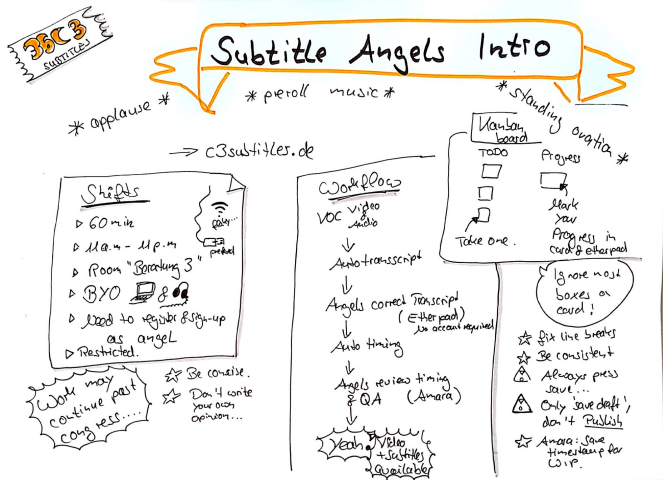 35C3
SUBTITLES
Subtitle Angels Intro
* applause *
* preroll music *
* standing ovation *
→ c3subtitles.de
Shifts
▷ 60 min
▷ 11 a.m - 11 p.m
▷ Room "Beratung 3"
▷ BYO &
▷ Need to register & sign-up
as angel
▷ Restricted.
Work may
continue past
congress....
☆ Be concise.
☆ Don't write
your own
opinion...
Workflow
VOC Video
&
Audio
Autotransscript
Angels correct Transcript
(Etherpad)
No account required
Auto timing
Angels review timing
& QA (Amara)
Yeah!
Video
+ Subtitles
available
Kanban
board
TODO
Progress
Take one.
Mark
your
Progress in
card & etherpad
Ignore most
boxes on
card!
☆ fix line breaks
☆ Be consistent
Always press
save...
Only 'save draft',
don't Publish
☆ Amara: Save
timestamp for
WIP.